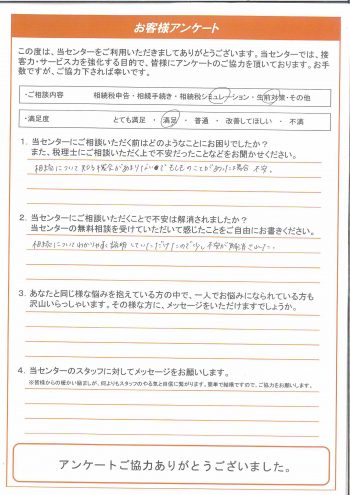 お客様アンケート
この度は、当センターをご利用いただきましてありがとうございます。当センターでは、接
客力・サービス力を強化する目的で、皆様にアンケートのご協力を頂いております。お手
数ですが、ご協力下されば幸いです。
・ご相談内容 相続税申告・相続手続き・相続税シミュレーション・生前対策・その他
・満足度 とても満足・満足・普通・改善してほしい・不満
1. 当センターにご相談いただく前はどのようなことにお困りでしたか？
また、税理士にご相談いただく上で不安だったことなどをお聞かせください。
相続について知る機会があまりないので もしものことがあった場合 不安。
2. 当センターにご相談いただくことで不安は解消されましたか？
当センターの無料相談を受けていただいて感じたことをご自由にお書きください。
相続についてわかり易く説明していただけたので少し不安が解消された。
3. あなたと同じ様な悩みを抱えている方の中で、一人でお悩みになられている方も
沢山いらっしゃいます。その様な方に、メッセージをいただけますでしょうか。
4. 当センターのスタッフに対してメッセージをお願いします。
※皆様からの暖かい励ましが、何よりもスタッフのやる気と自信に繋がります。簡単で結構ですので、ご協力をお願いします。
アンケートご協力ありがとうございました。